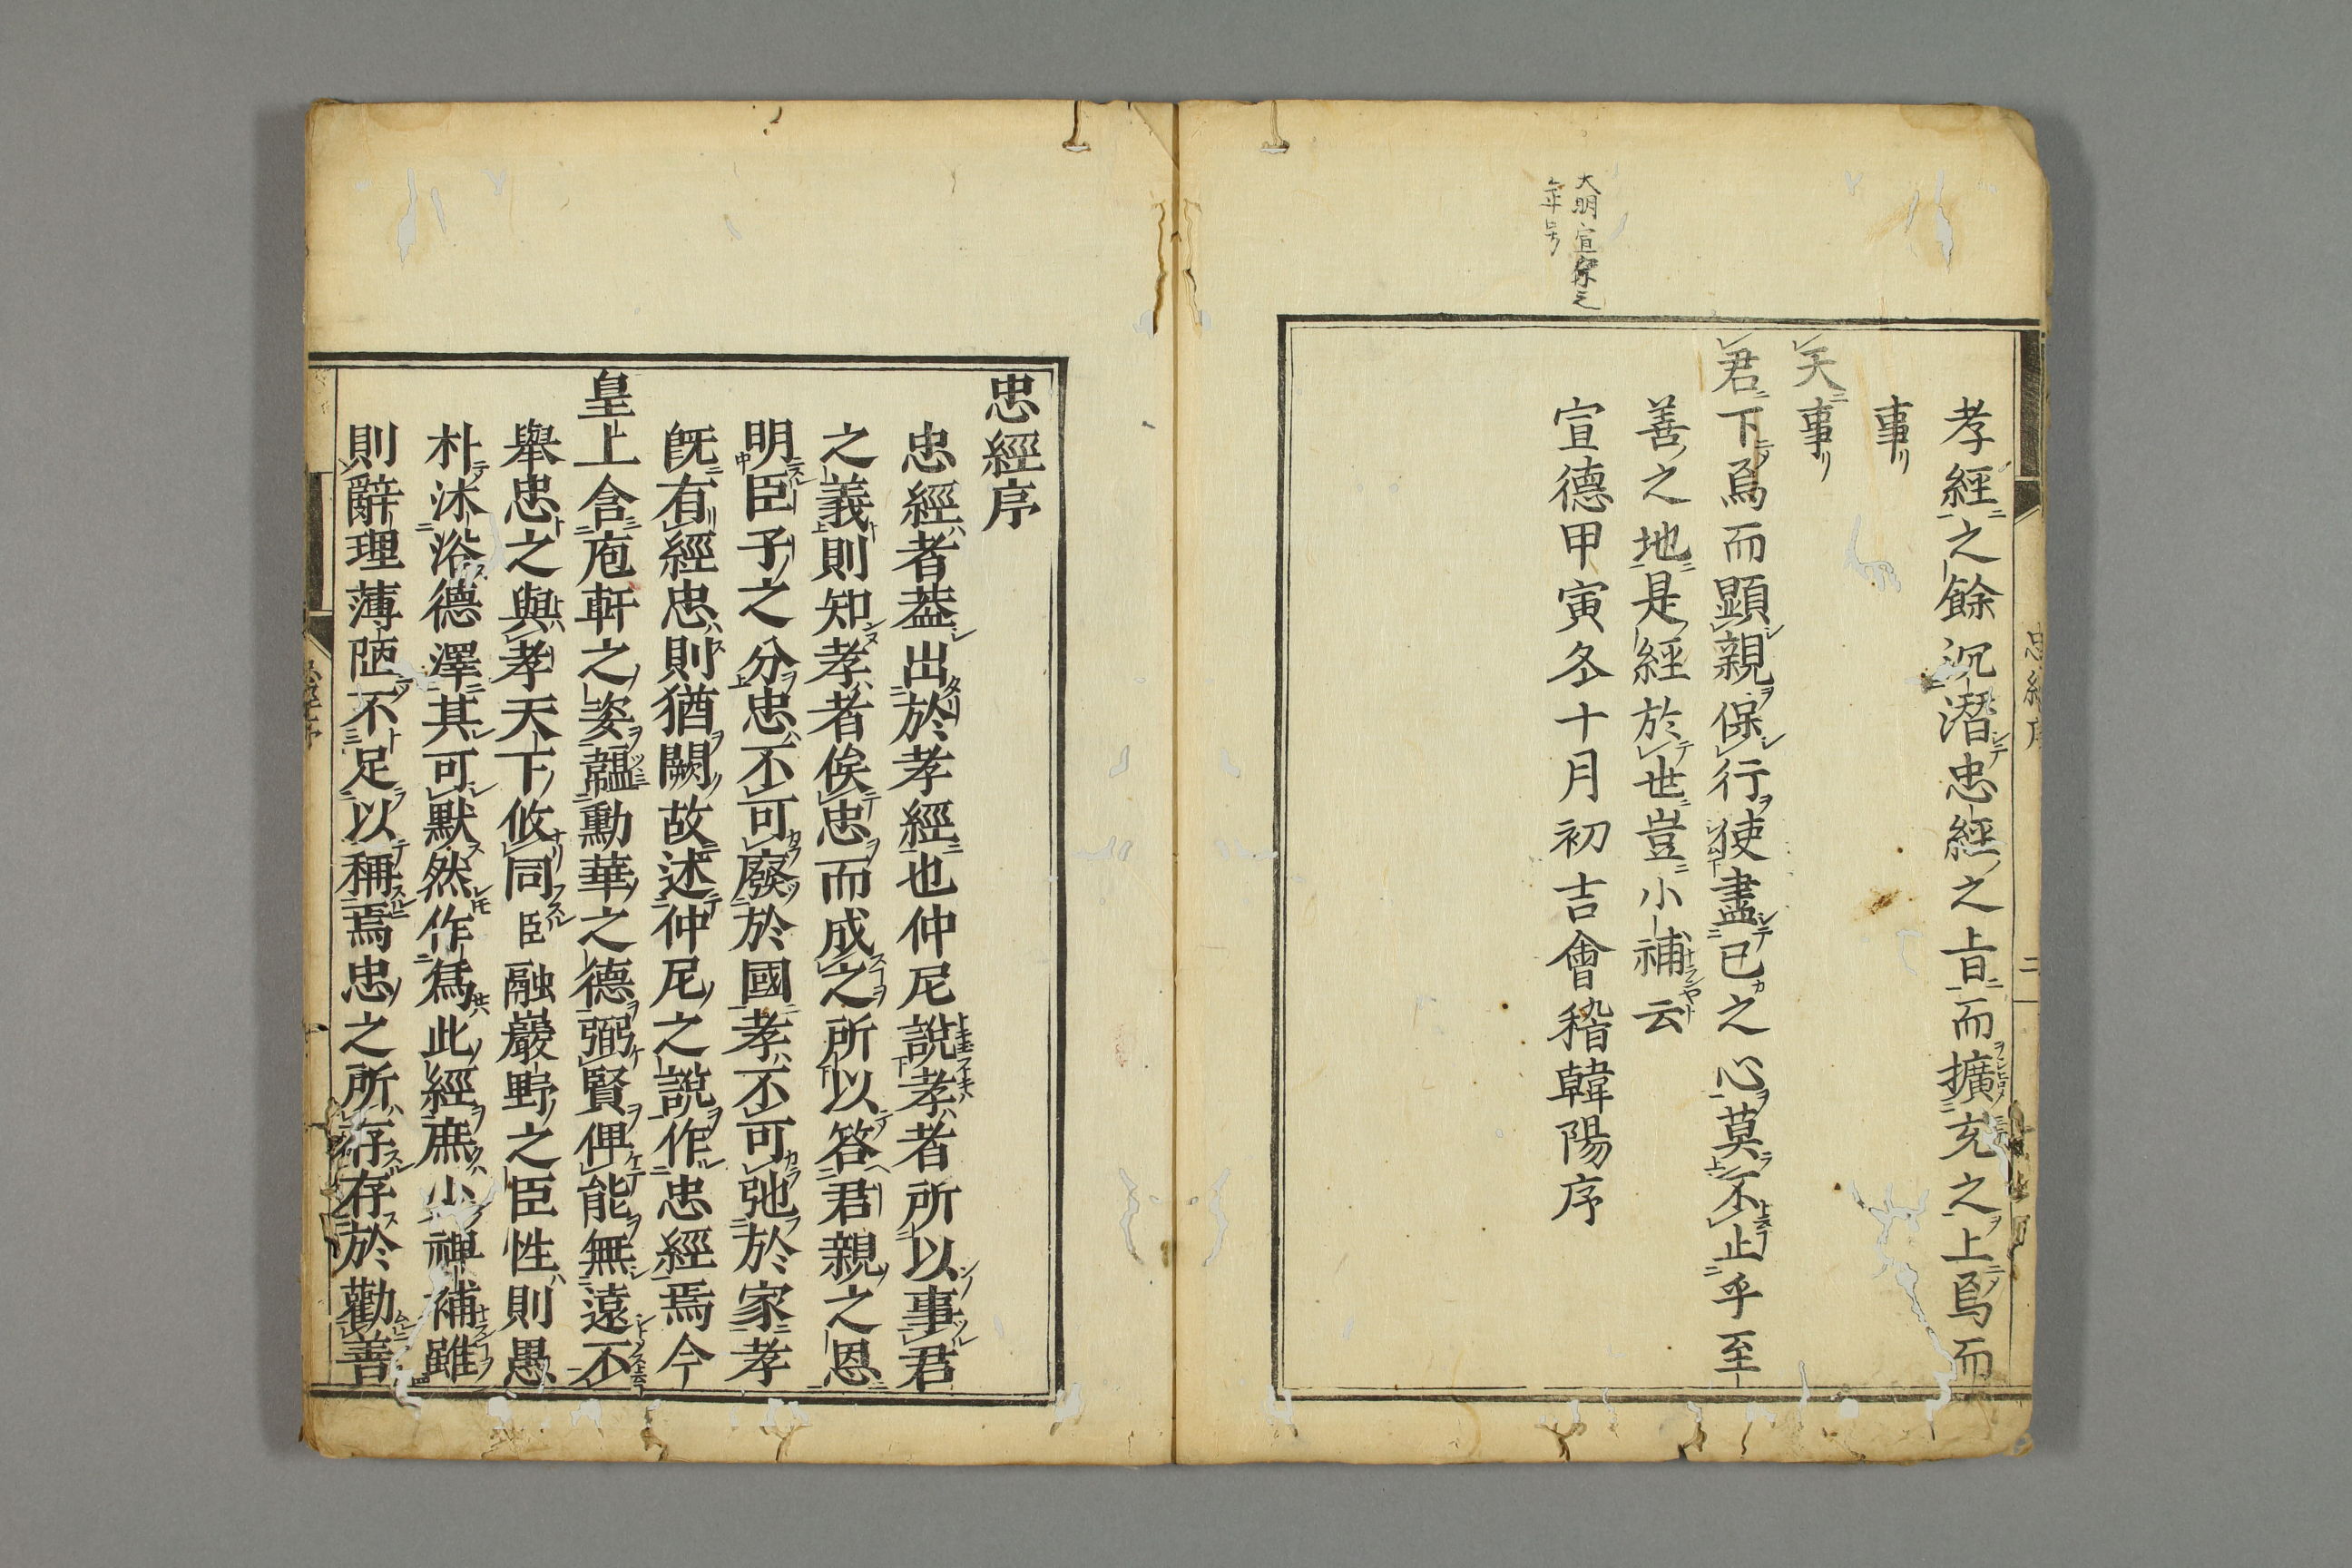 大明宣宗之
年号
孝經之餘沉潛忠經之旨而擴充之上焉而
事
天事
君下焉而顯親保行使盡己之心莫不止乎至
善之地是經於世豈小補云
宣德甲寅冬十月初吉會稽韓陽序
忠經序
忠經者葢出於孝經也仲尼說孝者所以事君
之義則知孝者俟忠而成之所以答君親之恩
明臣子之分忠不可廢於國孝不可弛於家孝
旣有經忠則猶闕故述仲尼之說作忠經焉今
皇上含庖軒之姿韞勳華之德弼賢俾能無遠不
舉忠之與孝天下攸同臣融巖野之臣性則愚
朴沐浴德澤其可默然作為此經庶少裨補雖
則辭理薄陋不足以稱焉忠之所存存於勸善